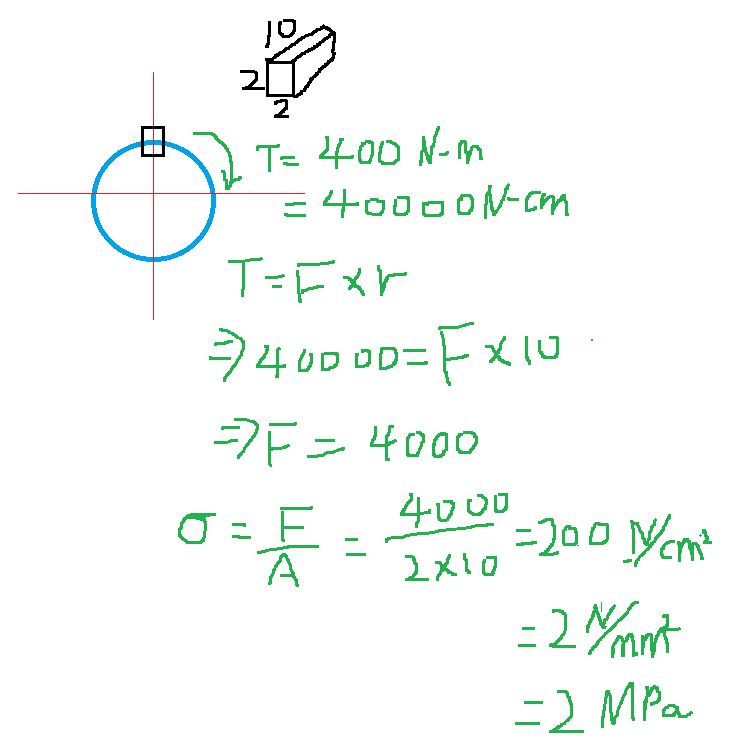 10
2
2
T = 400 N-m
= 40000 N-cm
T = F × r
⇒ 40000 = F × 10
⇒ F = 4000
σ = F/A = 4000/(2×10) = 200 N/cm²
= 2 N/mm²
= 2 MPa